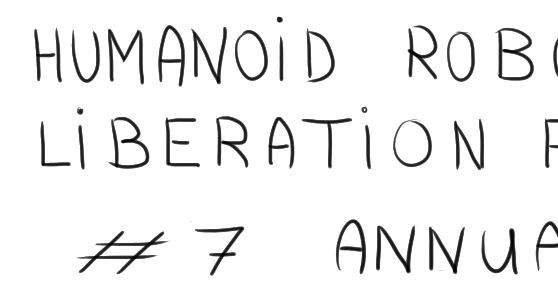 HUMANOID ROBO
LIBERATION
#7 ANNUA